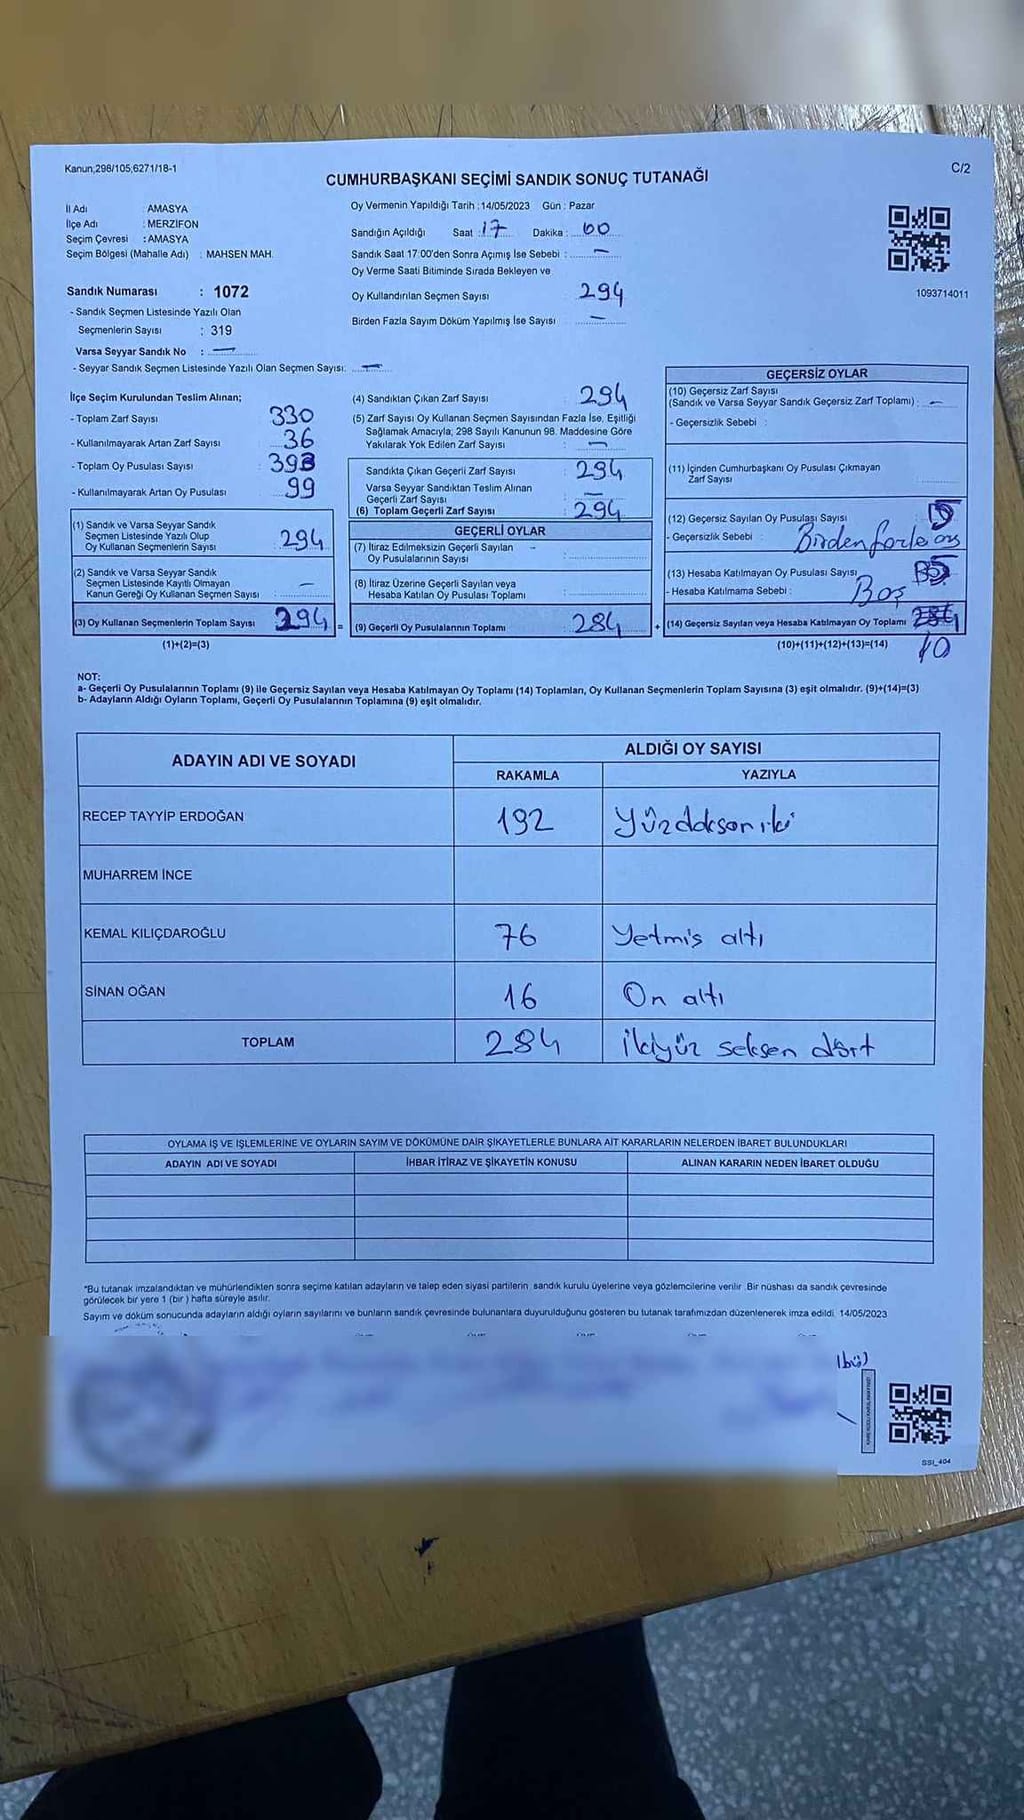 Kanun;298/105,6271/18-1
C/2
CUMHURBAŞKANI SEÇİMİ SANDIK SONUÇ TUTANAĞI
İl Adı : AMASYA
İlçe Adı : MERZİFON
Seçim Çevresi : AMASYA
Seçim Bölgesi (Mahalle Adı) : MAHSEN MAH.
Sandık Numarası : 1072
- Sandık Seçmen Listesinde Yazılı Olan
Seçmenlerin Sayısı : 319
Varsa Seyyar Sandık No : —
- Seyyar Sandık Seçmen Listesinde Yazılı Olan Seçmen Sayısı: —
Oy Vermenin Yapıldığı Tarih :14/05/2023 Gün : Pazar
Sandığın Açıldığı Saat : 17 Dakika : 00
Sandık Saat 17:00'den Sonra Açımış İse Sebebi : —
Oy Verme Saati Bitiminde Sırada Bekleyen ve
Oy Kullandırılan Seçmen Sayısı 294
Birden Fazla Sayım Döküm Yapılmış İse Sayısı : —
1093714011
İlçe Seçim Kurulundan Teslim Alınan;
- Toplam Zarf Sayısı : 330
- Kullanılmayarak Artan Zarf Sayısı : 36
- Toplam Oy Pusulası Sayısı : 393
- Kullanılmayarak Artan Oy Pusulası : 99
(1) Sandık ve Varsa Seyyar Sandık
Seçmen Listesinde Yazılı Olup
Oy Kullanan Seçmenlerin Sayısı : 294
(2) Sandık ve Varsa Seyyar Sandık
Seçmen Listesinde Kayıtlı Olmayan
Kanun Gereği Oy Kullanan Seçmen Sayısı : —
(3) Oy Kullanan Seçmenlerin Toplam Sayısı : 294 =
(1)+(2)=(3)
(4) Sandıktan Çıkan Zarf Sayısı : 294
(5) Zarf Sayısı Oy Kullanan Seçmen Sayısından Fazla İse, Eşitliği
Sağlamak Amacıyla, 298 Sayılı Kanunun 98. Maddesine Göre
Yakılarak Yok Edilen Zarf Sayısı : —
Sandıkta Çıkan Geçerli Zarf Sayısı : 294
Varsa Seyyar Sandıktan Teslim Alınan
Geçerli Zarf Sayısı : —
(6) Toplam Geçerli Zarf Sayısı : 294
GEÇERLİ OYLAR
(7) İtiraz Edilmeksizin Geçerli Sayılan
Oy Pusulalarının Sayısı :
(8) İtiraz Üzerine Geçerli Sayılan veya
Hesaba Katılan Oy Pusulası Toplamı :
(9) Geçerli Oy Pusulalarının Toplamı : 284 +
GEÇERSİZ OYLAR
(10) Geçersiz Zarf Sayısı
(Sandık ve Varsa Seyyar Sandık Geçersiz Zarf Toplamı) : —
- Geçersizlik Sebebi :
(11) İçinden Cumhurbaşkanı Oy Pusulası Çıkmayan
Zarf Sayısı
(12) Geçersiz Sayılan Oy Pusulası Sayısı : 5
- Geçersizlik Sebebi : Birden fazla oy
(13) Hesaba Katılmayan Oy Pusulası Sayısı : 5
- Hesaba Katılmama Sebebi : Boş
(14) Geçersiz Sayılan veya Hesaba Katılmayan Oy Toplamı 284
10
(10)+(11)+(12)+(13)=(14)
NOT:
a- Geçerli Oy Pusulalarının Toplamı (9) ile Geçersiz Sayılan veya Hesaba Katılmayan Oy Toplamı (14) Toplamları, Oy Kullanan Seçmenlerin Toplam Sayısına (3) eşit olmalıdır. (9)+(14)=(3)
b- Adayların Aldığı Oyların Toplamı, Geçerli Oy Pusulalarının Toplamına (9) eşit olmalıdır.
ADAYIN ADI VE SOYADI
ALDIĞI OY SAYISI
RAKAMLA YAZIYLA
RECEP TAYYİP ERDOĞAN 192 Yüzdoksan iki
MUHARREM İNCE
KEMAL KILIÇDAROĞLU 76 Yetmiş altı
SİNAN OĞAN 16 On altı
TOPLAM 284 İkiyüz seksen dört
OYLAMA İŞ VE İŞLEMLERİNE VE OYLARIN SAYIM VE DÖKÜMÜNE DAİR ŞİKAYETLERLE BUNLARA AİT KARARLARIN NELERDEN İBARET BULUNDUKLARI
ADAYIN ADI VE SOYADI İHBAR İTİRAZ VE ŞİKAYETİN KONUSU ALINAN KARARIN NEDEN İBARET OLDUĞU
"Bu tutanak imzalandıktan ve mühürlendikten sonra seçime katılan adayların ve talep eden siyasi partilerin sandık kurulu üyelerine veya gözlemcilerine verilir. Bir nüshası da sandık çevresinde
görülecek bir yere 1 (bir) hafta süreyle asılır.
Sayım ve döküm sonucunda adayların aldığı oyların sayılarını ve bunların sandık çevresinde bulunanlara duyurulduğunu gösteren bu tutanak tarafımızdan düzenlenerek imza edildi. 14/05/2023
SSI_404